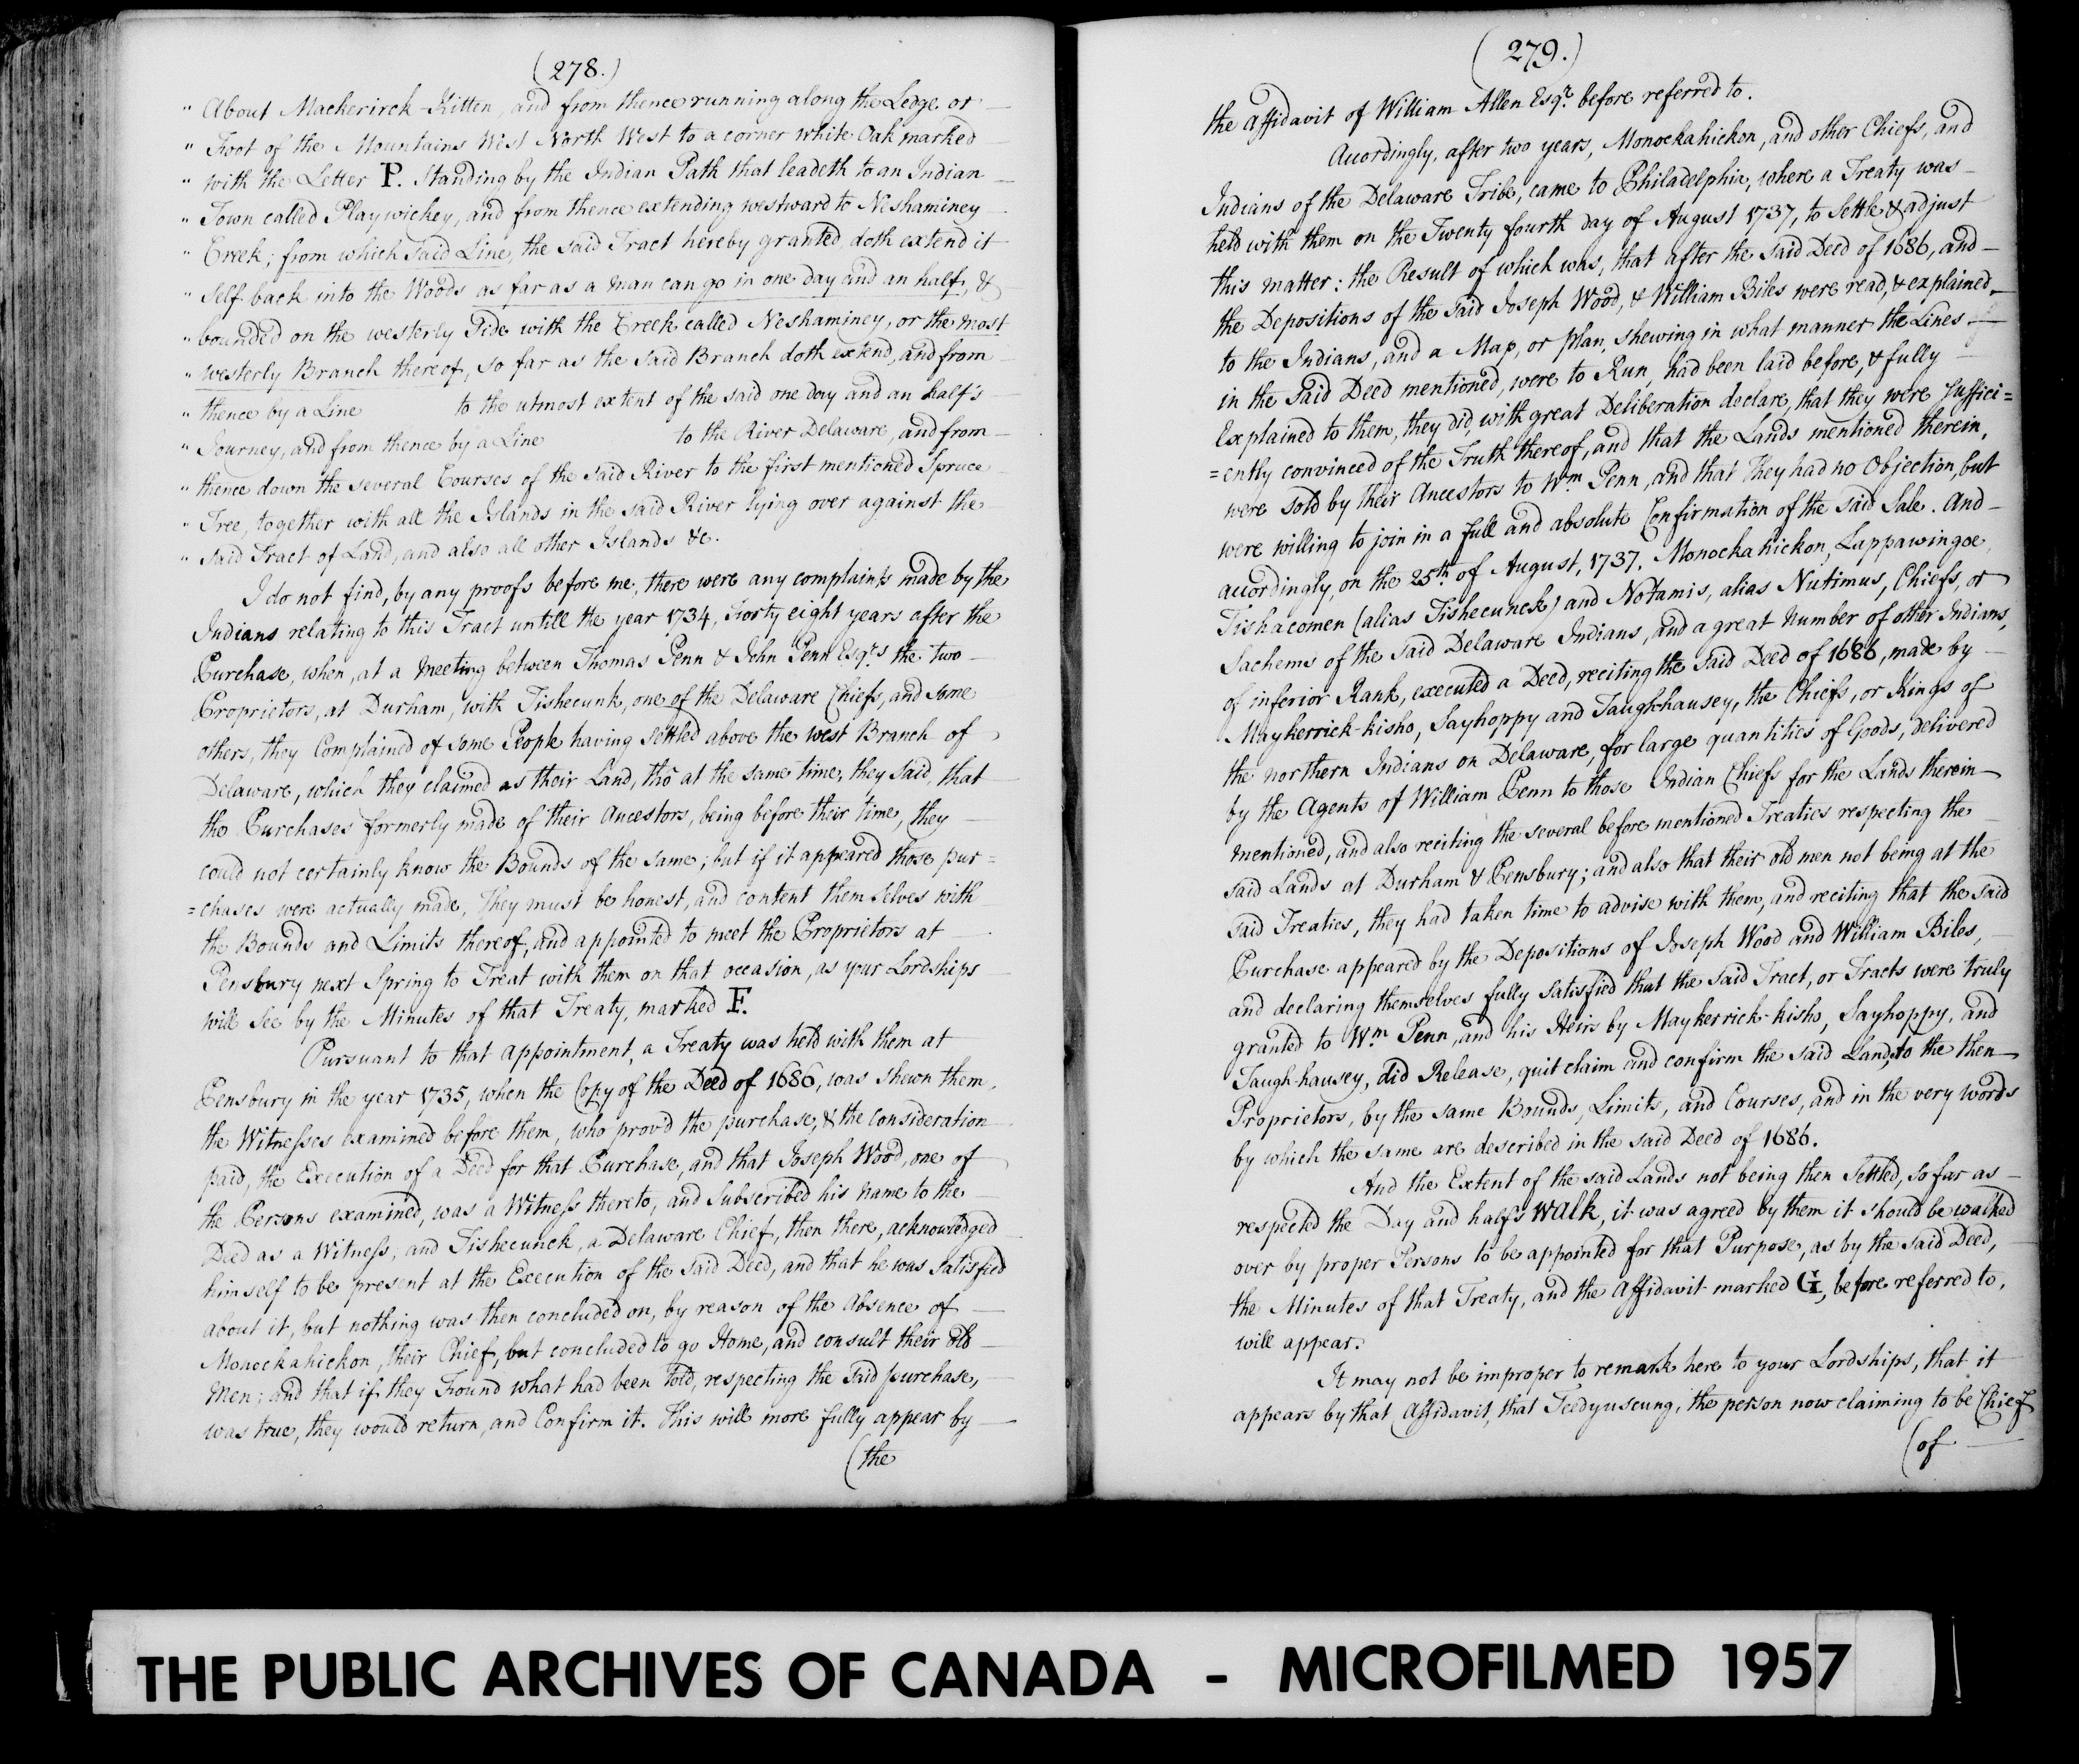 (278.)
" About Mackerirck-Kitten, and from thence running along the Ledge or
" Foot of the Mountains West North West to a corner white Oak marked
" with the Letter P. Standing by the Indian Path that leadeth to an Indian
" Town called Playwickey, and from thence extending westward to Neshaminey
" Creek; from which said Line, the said Tract hereby granted, doth extend it
" self back into the Woods as far as a man can go in one day and an half, &
" bounded on the westerly Side with the Creek called Neshaminey, or the most
" westerly Branch thereof, so far as the said Branch doth extend, and from
" thence by a Line to the utmost extent of the said one day and an half's
" Journey, and from thence by a Line to the River Delaware, and from
" thence down the several Courses of the said River to the first mentioned Spruce
" Tree, together with all the Islands in the said River lying over against the
" said Tract of Land, and also all other Islands &c.
I do not find, by any proofs before me, there were any complaints made by the
Indians relating to this Tract untill the year 1734, Forty eight years after the
Purchase, when, at a Meeting between Thomas Penn & John Penn Esqrs the two
Proprietors, at Durham, with Tishecunk, one of the Delaware Chiefs, and some
others, they Complained of some People having settled above the west Branch of
Delaware, which they claimed as their Land, tho' at the same time, they said, that
the Purchases formerly made of their Ancestors, being before their time, they
could not certainly know the Bounds of the same; but if it appeared those pur=
=chases were actually made, They must be honest, and content themselves with
the Bounds and Limits thereof, and appointed to meet the Proprietors at
Pensbury next Spring to Treat with them on that occasion, as your Lordships
will See by the Minutes of that Treaty, marked F.
Pursuant to that appointment, a Treaty was held with them at
Pensbury in the year 1735, when the Copy of the Deed of 1686, was shewn them,
the Witnesses examined before them, who prov'd the purchase, & the consideration
paid, the Execution of a Deed for that Purchase, and that Joseph Wood, one of
the Persons examined, was a Witness thereto, and Subscribed his Name to the
Deed as a Witness; and Tishecunck, a Delaware Chief, then there, acknowledged
himself to be present at the Execution of the said Deed, and that he was satisfied
about it, but nothing was then concluded on, by reason of the Absence of
Monockahickon, their Chief, but concluded to go Home, and consult their old
Men; and that if they Found what had been told, respecting the said purchase,
was true, they would return, and Confirm it. This will more fully appear by
(the
(279.)
the Affidavit of William Allen Esqr. before referred to.
Accordingly, after two years, Monockahickon, and other Chiefs, and
Indians of the Delaware Tribe, came to Philadelphia, where a Treaty was
held with them on the Twenty fourth day of August 1737, to Settle & adjust
this matter: the Result of which was, that after the said Deed of 1686, and
the Depositions of the said Joseph Wood, & William Biles were read, & explained
to the Indians, and a Map, or Plan, shewing in what manner the Lines
in the Said Deed mentioned, were to Run, had been laid before, & fully
Explained to them, they did, with great Deliberation declare, that they were Suffici=
=ently convinced of the Truth thereof, and that the Lands mentioned therein,
were sold by their Ancestors to Wm Penn, and that They had no Objection, but
were willing to join in a full and absolute Confirmation of the said Sale. And
accordingly, on the 25th of August, 1737. Monockahickon, Lappawingoe,
Tishacomen (alias Tishecunck) and Notamis, alias Nutimus, Chiefs, or
Sachems of the said Delaware Indians, and a great Number of other Indians,
of inferior Rank, executed a Deed, reciting the said Deed of 1686, made by
Maykerrick-kisho, Sayhoppy and Taugh-hausey, the Chiefs, or Kings of
the northern Indians on Delaware, for large quantities of Goods, delivered
by the Agents of William Penn to those Indian Chiefs for the Lands therein
mentioned, and also reciting the several before mentioned Treaties respecting the
said Lands at Durham & Pensbury; and also that their old men not being at the
said Treaties, they had taken time to advise with them, and reciting that the said
Purchase appeared by the Depositions of Joseph Wood and William Biles,
and declaring themselves fully satisfied that the said Tract, or Tracts were truly
granted to Wm Penn, and his Heirs by Maykerrick-kisho, Sayhoppy, and
Taugh-hausey, did Release, quit claim and confirm the said Land, to the then
Proprietors, by the same Bounds, Limits, and Courses, and in the very words
by which the same are described in the said Deed of 1686.
And the Extent of the said Lands not being then Settled, so far as
respected the Day and half's Walk, it was agreed by them it should be walked
over by proper Persons to be appointed for that Purpose, as by the said Deed,
the Minutes of that Treaty, and the Affidavit marked G, before referred to,
will appear.
It may not be improper to remark here to your Lordships, that it
appears by that Affidavit, that Teedyuscung, the person now claiming to be Chief
(of
THE PUBLIC ARCHIVES OF CANADA - MICROFILMED 1957